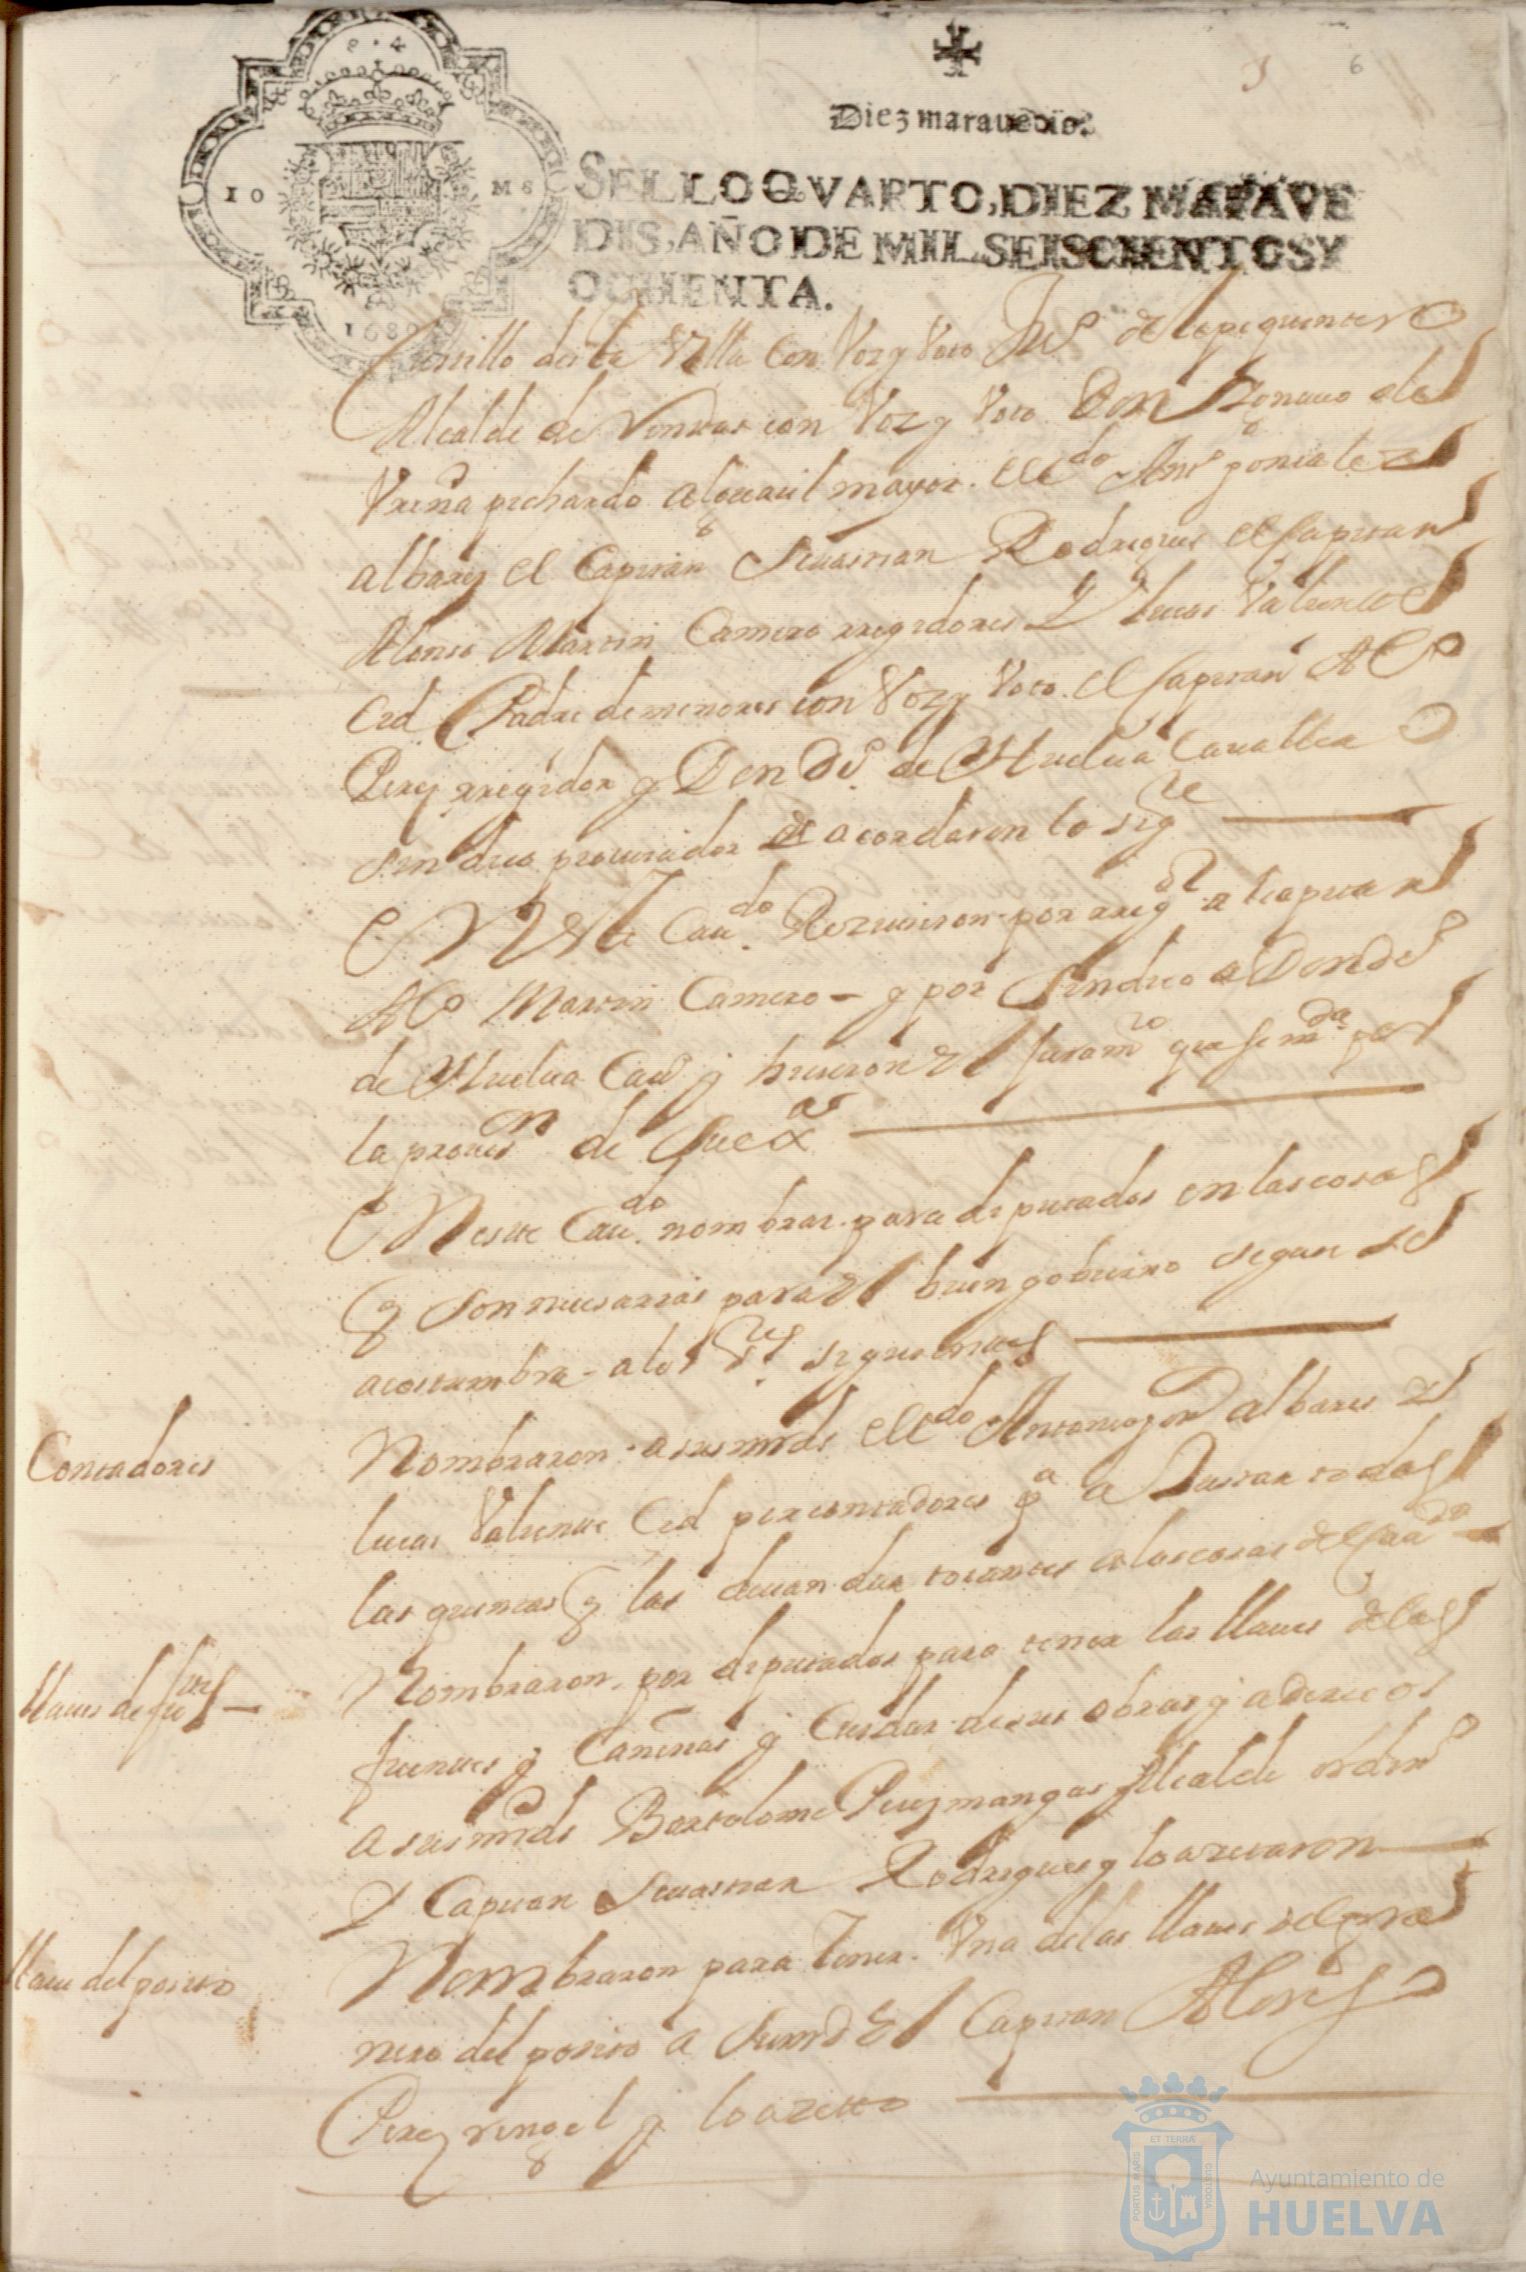 6
Diez maravedis.
10 MS
SELLO QVARTO, DIEZ MARAVE
DIS, AÑO DE MIL SEISCIENTOS Y
OCHENTA.
1680
Castillo desta Villa con Voz y Voto Ju.º de lepe quintero
Alcalde de con Voz y Voto Don de
Vreña pichardo alguacil mayor. el l.do Ant.º gonsales
albares el Capitan Seuastian Rodrigues el Capitan
Alonso Martin Camero rregidores Y lucas Valiente
Cid Padre de menores con Voz y Voto. el Capitan Al.º
Perez rregidor y Don D.º de Huelua Cauallero
sindico procurador acordaron lo sig.te
EN Este Cau.do Reziuieron por rreg.or al capitan
Al.º Martin Camero - y por Sindico a Don D.º
de Huelua Cau.º y hicieron el juram.to que se m.da por
la prouis.n de su ex.a
EN este Cau.do nombrar para diputados en las cosas
q son nesesarias para el buen gobierno segun se
acostumbra - a los S.res siguientes
Contadores
Nombraron a sus mrds el l.do Antonio gon albares y
lucas Valiente Cid por contadores p.a ajustar todas
las quentas q las deuan dar tocantes a las cosas del Cau.do
llaues de fu.tes
Nombraron por diputados para tener las llaues de las
fuentes y Cañerias y Cuidar de sus obras y aderecos
a sus mrds Bartolome Perez mangas Alcalde ordin.º
Y Capitan Seuastian Rodrigues y lo azetaron
llaue del posito
Nombraron para tener Vna de las llaues del gra
nero del posito a su mrd El Capitan Alonso
Perez rengel y lo azetto
PORTUS MARIS
ET TERRÆ
CUSTODIA
Ayuntamiento de
HUELVA